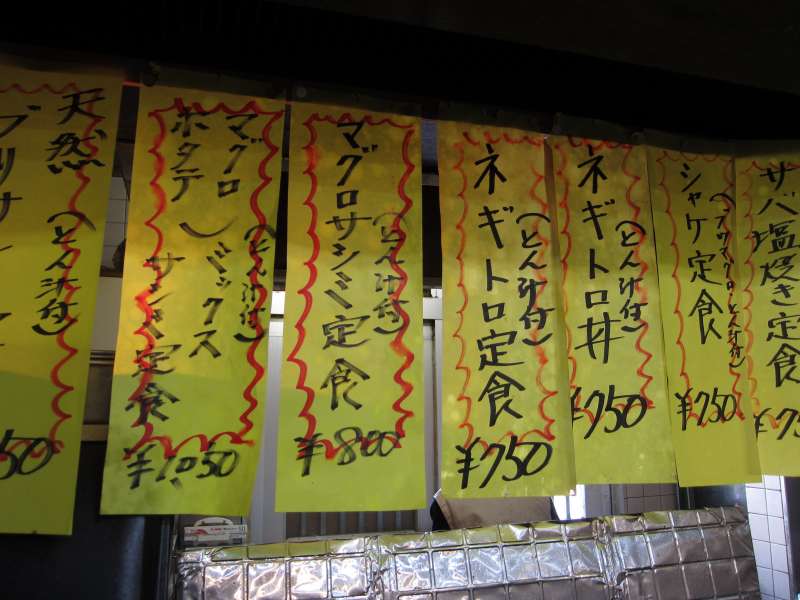 天然
ブリサシ
(とん汁付)
50
マグロ
ホタテ
ミックス
サシミ定食
(とん汁付)
¥1050
マグロサシミ定食
(とん汁付)
¥800
ネギトロ定食
(とん汁付)
¥750
ネギトロ丼
(とん汁付)
¥750
シャケ定食
とん汁付)
¥750
サバ塩焼き定食
¥750